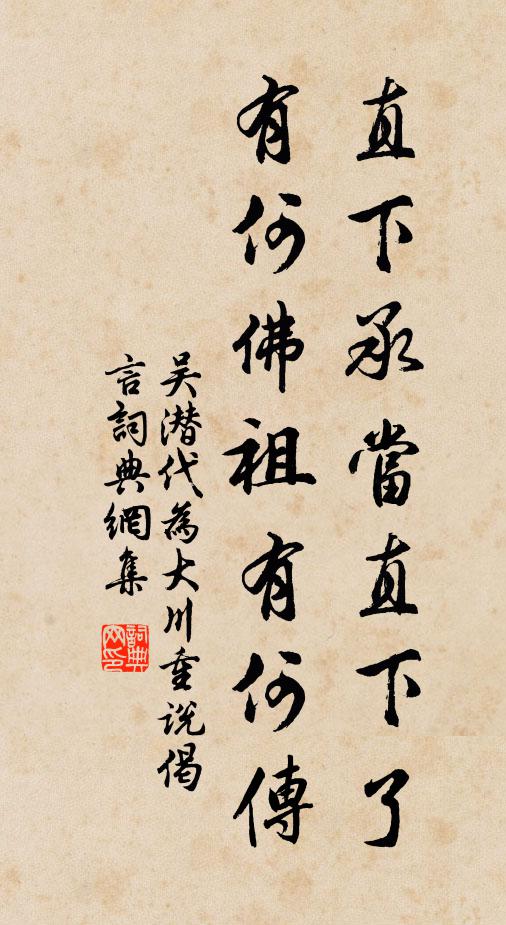 直下承當直下了
有何佛祖有何傳
吳潛代為大川重說偈
言詞典網集
詞典网印